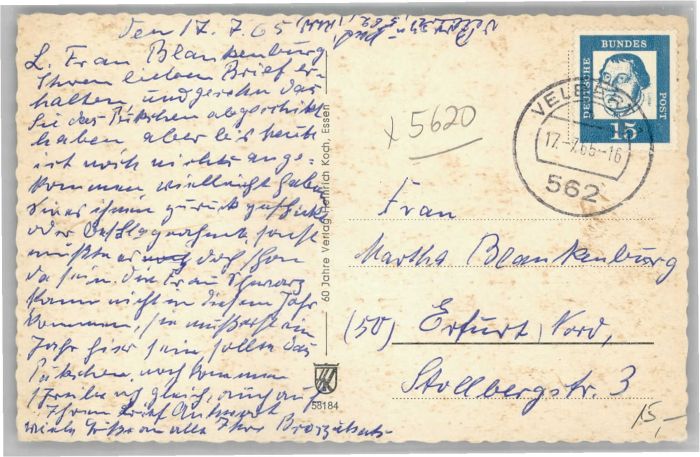 den 17. 7. 65
L. Frau Blankenburg
Ihren lieben Brief er-
halten, und gesehn das
Sie das Päckchen abgeschikt
haben, aber bis heute
ist noch nichts ange-
kommen vielleicht haben
Sie es ihnen zurück geschickt
oder Beschlagnahmt, sonst
müßte er noch doch schon
da sein, die Frau Schwarz
kann nicht in diesem Jahr
kommen, sie muß erst ein
Jahr hier sein, sollte das
Päckchen, noch kommen
schreibe ich gleich, auch auf
Ihren Brief Antwort
viele Grüße an alle Ihre
60 Jahre Verlag Heinrich Koch, Essen
58184
x 5620
DEUTSCHE BUNDES POST
15
VELBERT
17.-7.65-16
562
Frau
Martha Blankenburg
(50) Erfurt Nord,
Stollbergstr. 3
15,-